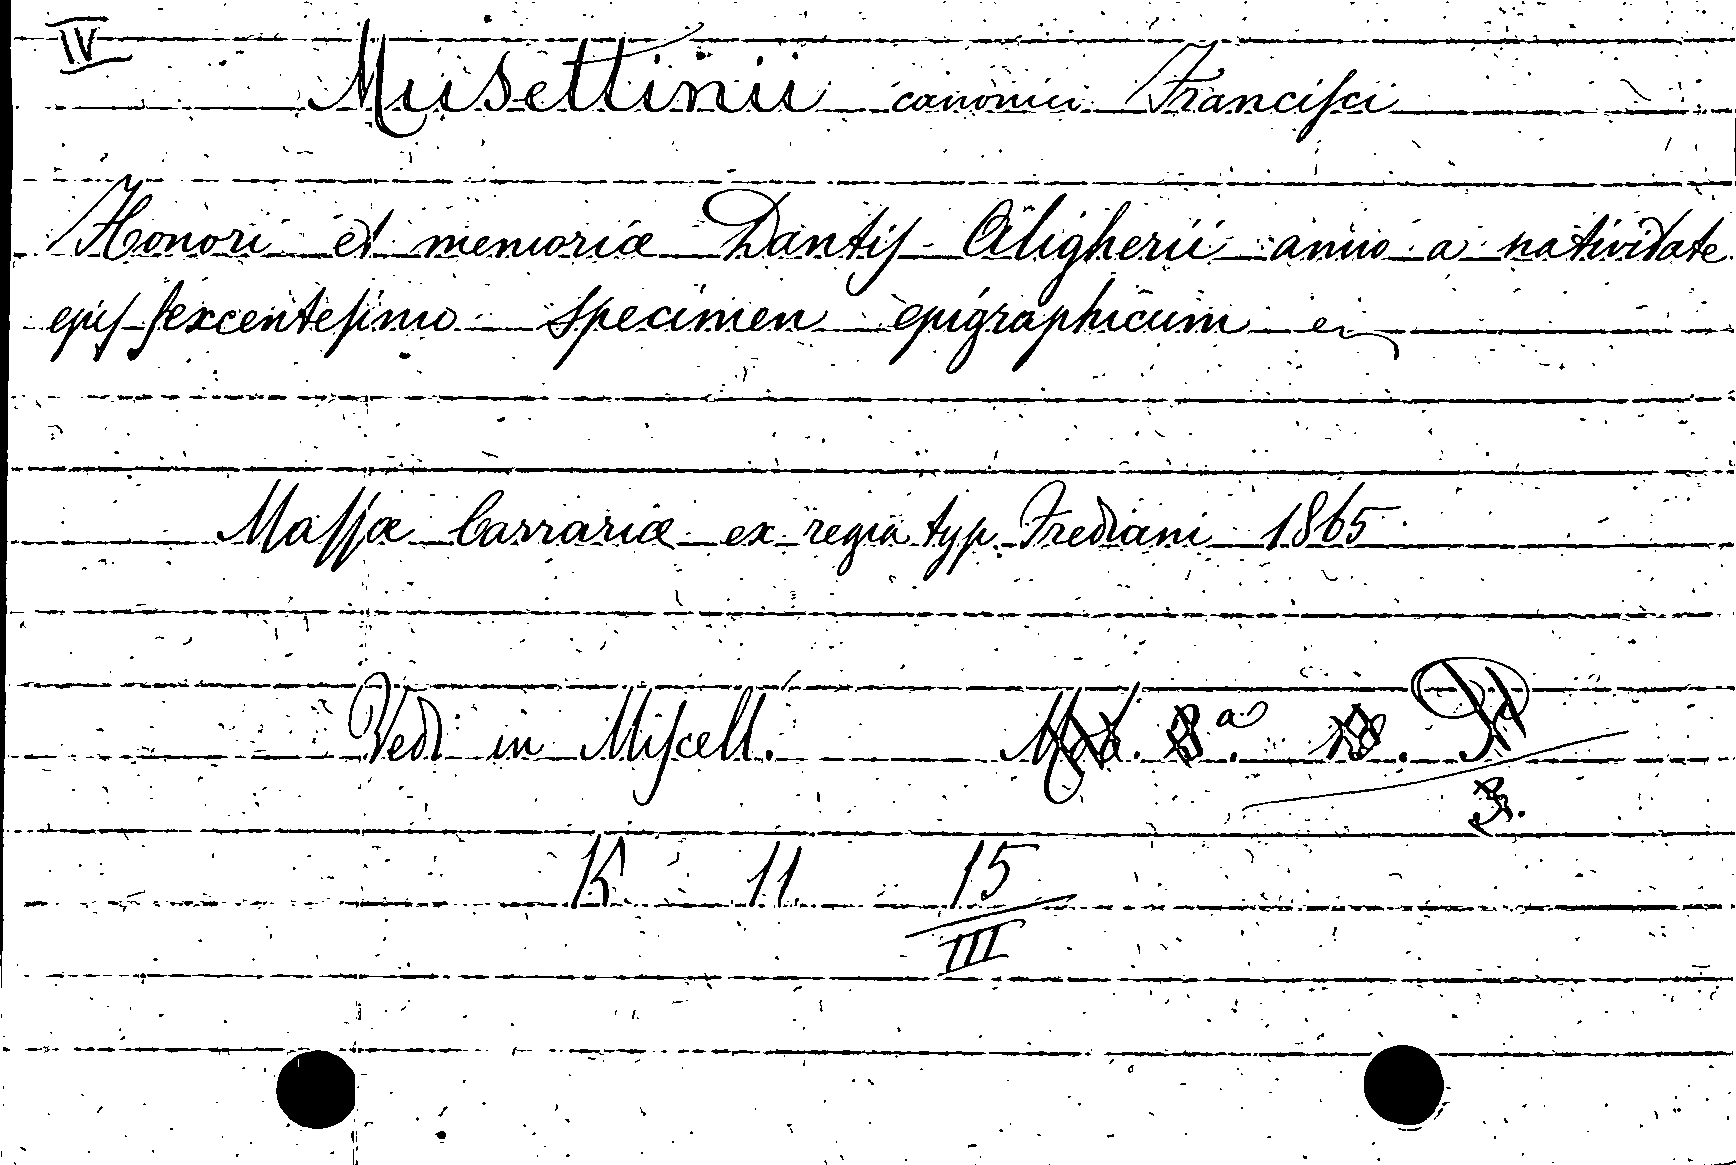 IV
Musettinii canonici Francisci
Honori et memoriæ Dantis Aligherii anno a nativitate
ejus sexcentesimo specimen epigraphicum
Massæ Carrariæ ex regia typ. Frediani 1865
Vedi in Miscell.
15 11 15
III